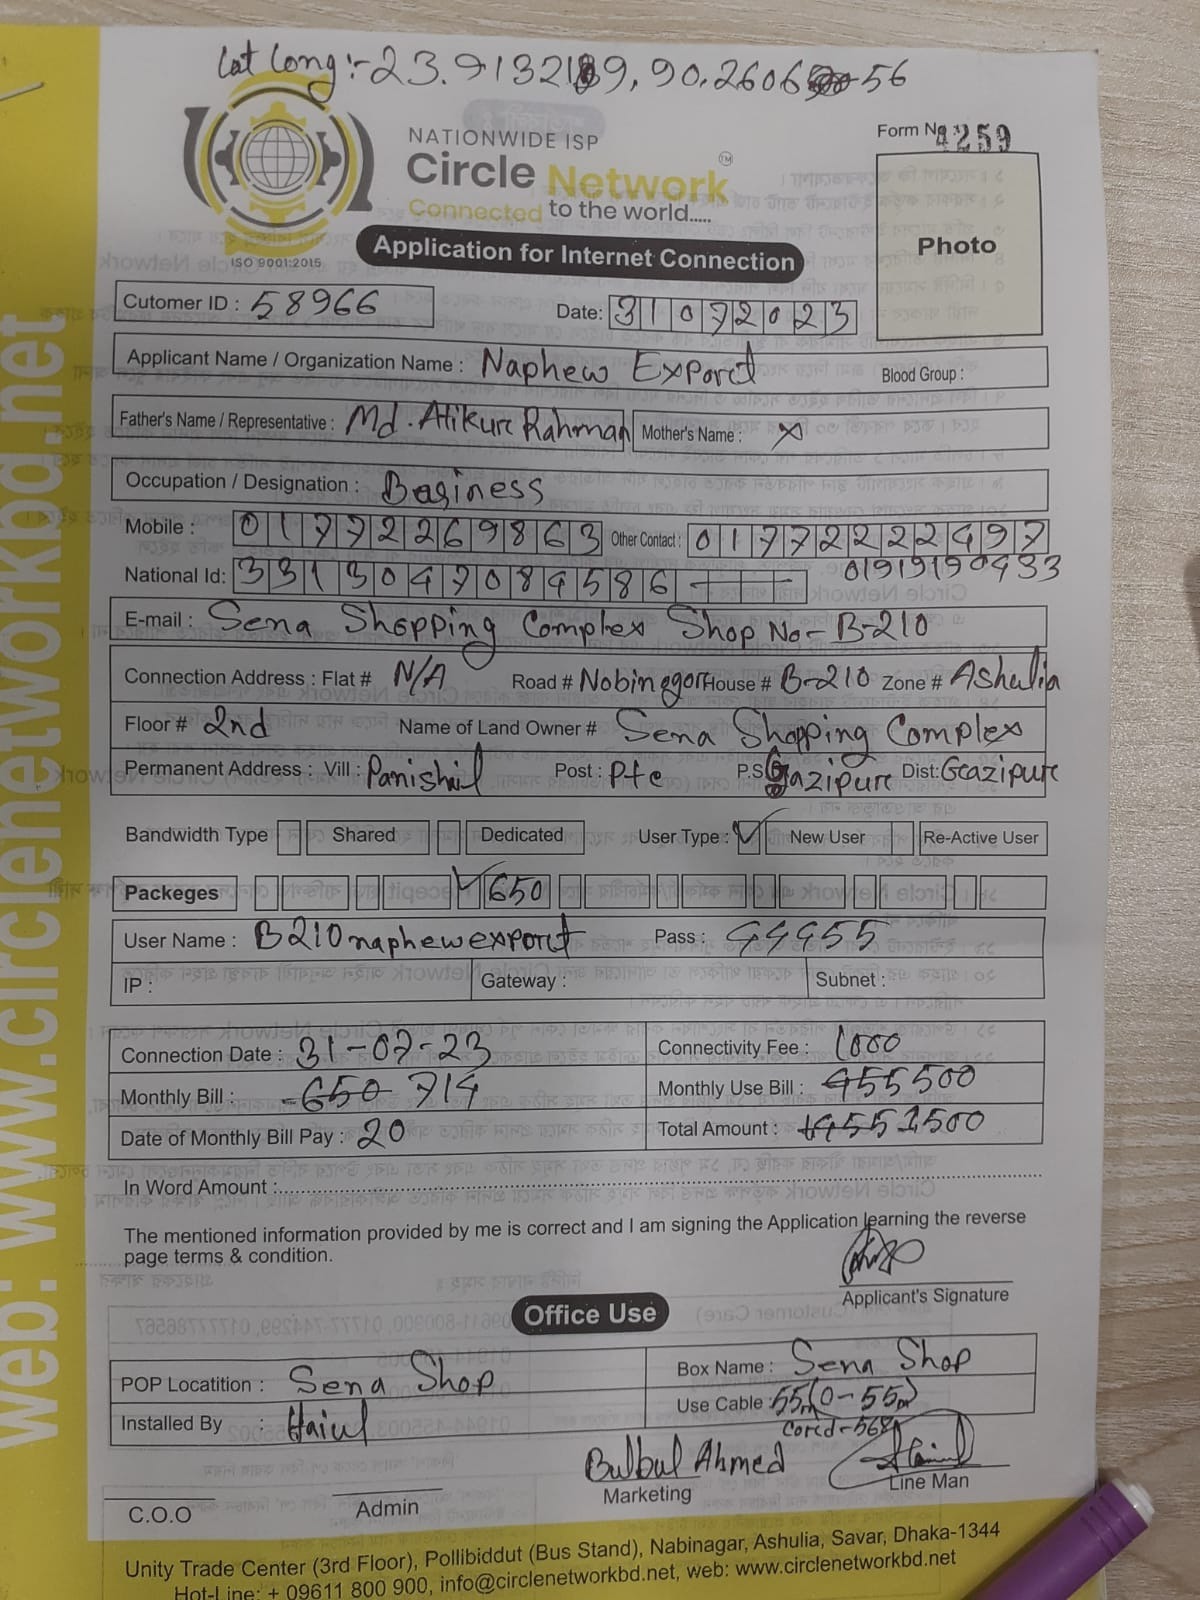 Lat Long:- 23.9132189, 90.2606 56
NATIONWIDE ISP
Circle Network TM
Connected to the world.....
ISO 9001:2015
Form No 4259
Photo
Application for Internet Connection
Cutomer ID : 58966
Date: 31072023
Applicant Name / Organization Name : Naphew Export
Blood Group :
Father's Name / Representative : Md. Atikur Rahman
Mother's Name : ×
Occupation / Designation : Basiness
Mobile : 01772269863 Other Contact : 01772222497
National Id: 3313047084586 01919190433
E-mail : Sena Shopping Complex Shop No- B-210
Connection Address : Flat # N/A Road # Nobinegor House # B-210 Zone # Ashulia
Floor # 2nd Name of Land Owner # Sena Shopping Complex
Permanent Address : Vill : Panishail Post : Pte P.S Gazipur Dist: Gazipur
Bandwidth Type Shared Dedicated User Type : ✓ New User Re-Active User
Packeges ✓ 650
User Name : B210naphewexport Pass : 44455
IP : Gateway : Subnet :
Connection Date : 31-07-23 Connectivity Fee : 1000
Monthly Bill : 650 714 Monthly Use Bill : 455 500
Date of Monthly Bill Pay : 20 Total Amount : 1455 1500
In Word Amount :
The mentioned information provided by me is correct and I am signing the Application learning the reverse
page terms & condition.
Applicant's Signature
Office Use
POP Locatition : Sena Shop Box Name : Sena Shop
Installed By : Haiul Use Cable : 55m(0-55m)
Cord-568
Bulbul Ahmed
C.O.O Admin Marketing Line Man
Unity Trade Center (3rd Floor), Pollibiddut (Bus Stand), Nabinagar, Ashulia, Savar, Dhaka-1344
Hot-Line: + 09611 800 900, info@circlenetworkbd.net, web: www.circlenetworkbd.net
web: www.circlenetworkbd.net